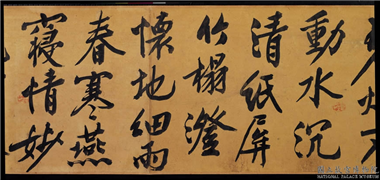 動水沉
清紙屏
竹榻澄
懷地細雨
春寒燕
寢情妙
NATIONAL PALACE MUSEUM